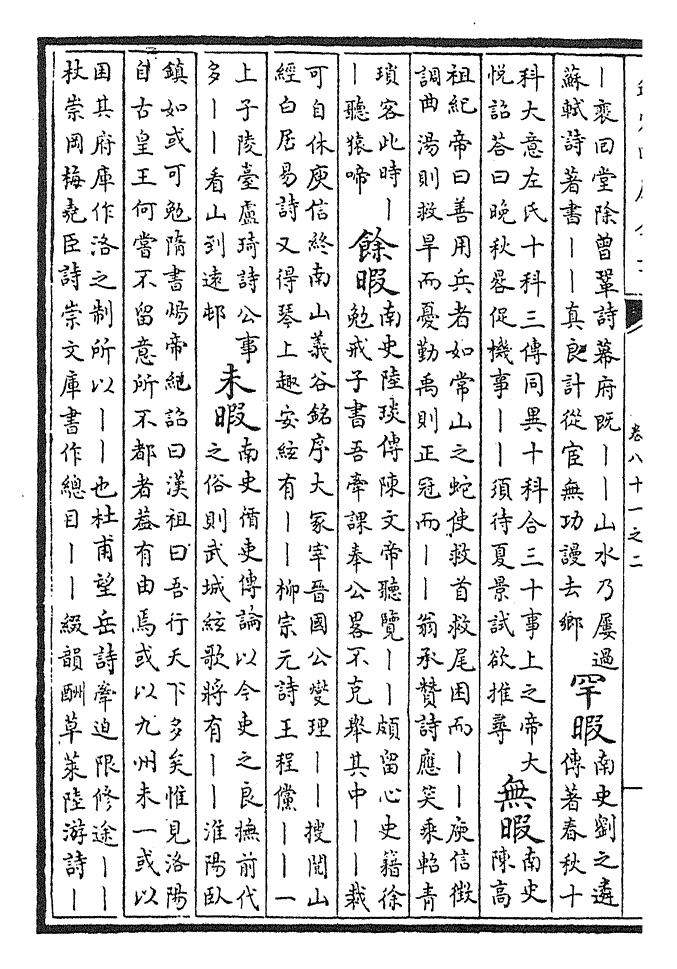 卷八十一之二
｜裵回堂除曾鞏詩幕府既｜｜山水乃屢過
蘇軾詩著書｜｜真良計從宦無功謾去鄉
罕暇
南史劉之遴
傳著春秋十
科大意左氏十科三傳同異十科合三十事上之帝大
悅詔答曰晚秋晷促機事｜｜須待夏景試欲推尋
無暇
南史
陳高
祖紀帝曰善用兵者如常山之蛇使救首救尾困而｜｜庾信徵
調曲湯則救旱而憂勤禹則正冠而｜｜翁承贊詩應笑乘軺青
瑣客此時｜
｜聽猿啼
餘暇
南史陸琰傳陳文帝聽覽｜｜頗留心史籍徐
勉戒子書吾牽課奉公畧不克舉其中｜｜裁
可自休庾信終南山義谷銘序大冡宰晉國公燮理｜｜搜閱山
經白居易詩又得琴上趣安絃有｜｜柳宗元詩王程儻｜｜一
上子陵臺盧琦詩公事
多｜｜看山到遠邨
未暇
南史循吏傳論以今吏之良撫前代
之俗則武城絃歌將有｜｜淮陽臥
鎮如或可勉隋書煬帝紀詔曰漢祖曰吾行天下多矣惟見洛陽
自古皇王何嘗不留意所不都者葢有由焉或以九州未一或以
困其府庫作洛之制所以｜｜也杜甫望岳詩牽迫限修途｜｜
杖崇岡梅堯臣詩崇文庫書作總目｜｜綴韻酬草萊陸游詩｜